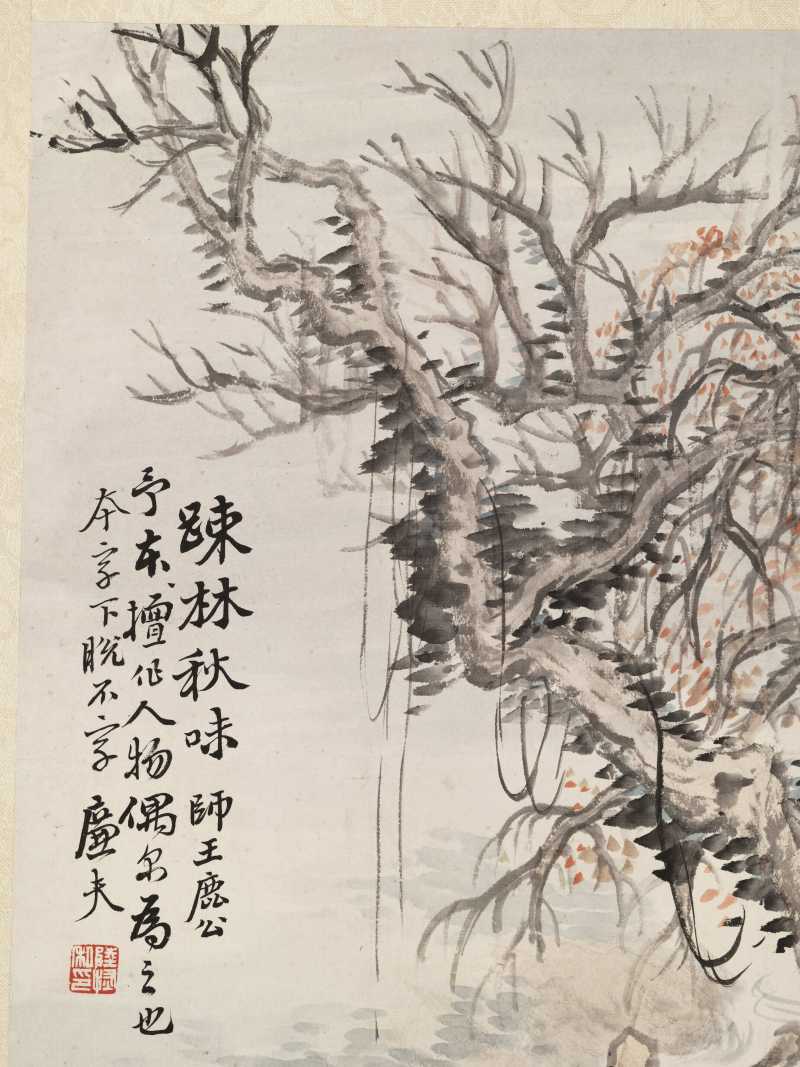 疎林秋味 師王鹿公
予本擅作人物偶尔為之也
本字下脫不字 廉夫